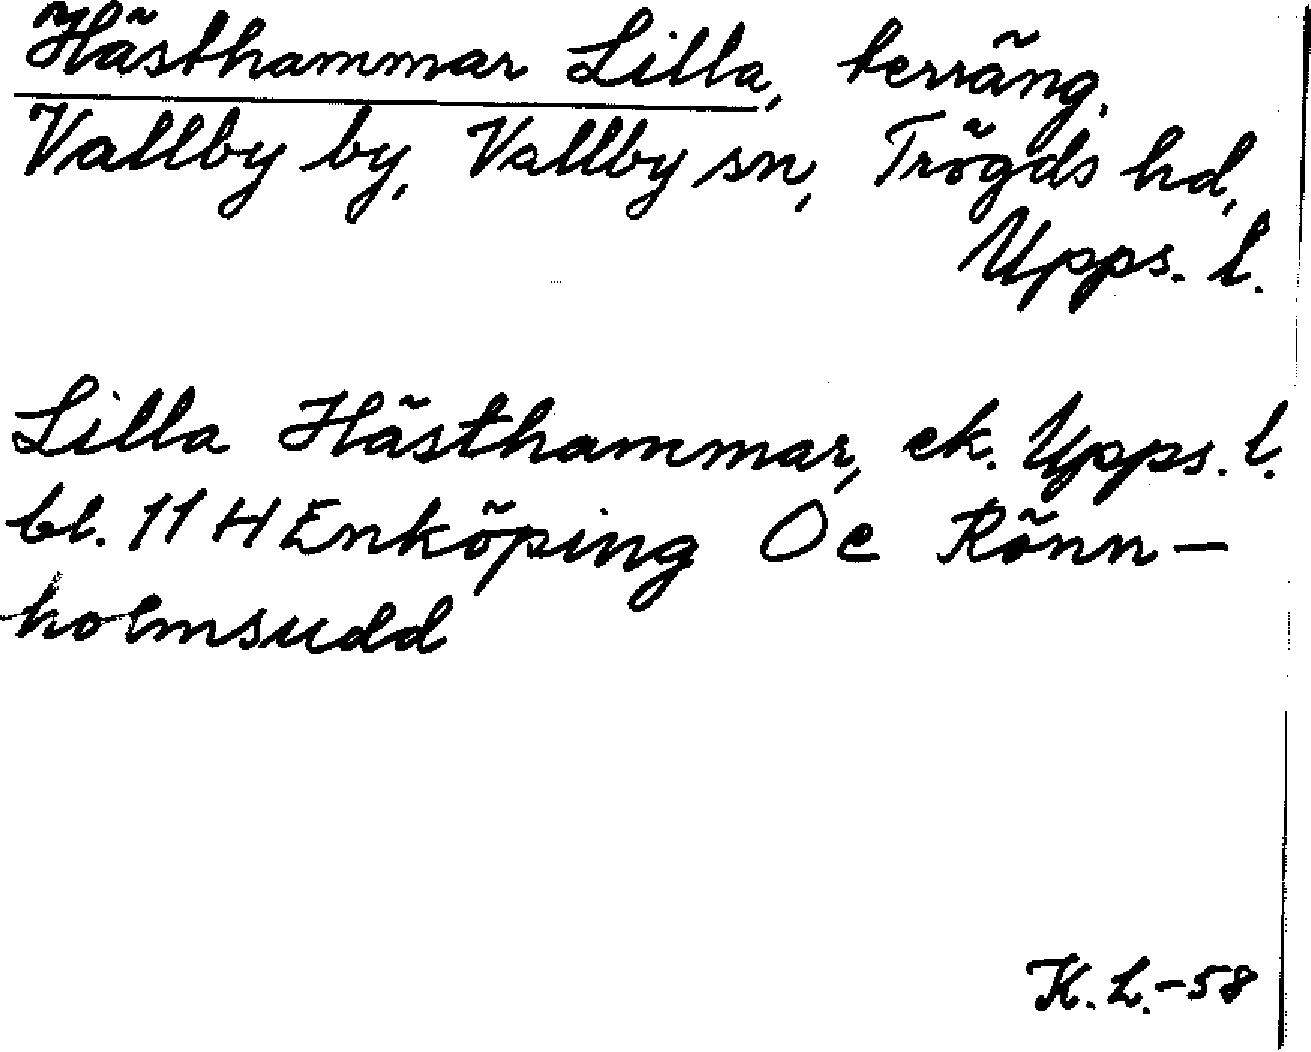 Hästhammar Lilla, terräng,
Vallby by, Vallby sn, Trögds hd,
Upps. l.
Lilla Hästhammar, ek. Upps. l.
bl. 11 H Enköping Oe Rönn-
holmsudd
K. L.-58